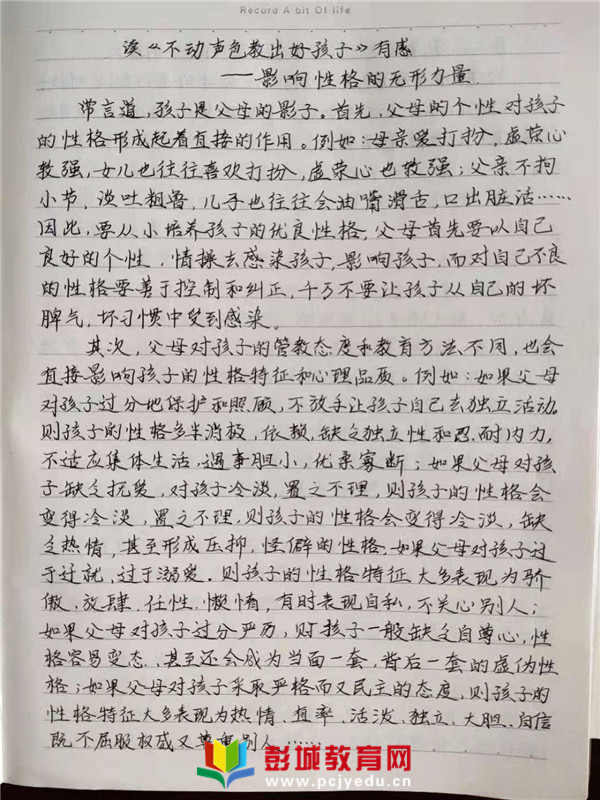 Record A bit Of life
读《不动声色教出好孩子》有感
——影响性格的无形力量
常言道,孩子是父母的影子。首先,父母的个性对孩子
的性格形成起着直接的作用。例如:母亲爱打扮,虚荣心
较强,女儿也往往喜欢打扮,虚荣心也较强;父亲不拘
小节,谈吐粗鲁,儿子也往往会油嘴滑舌,口出脏话……
因此,要从小培养孩子的优良性格,父母首先要以自己
良好的个性,情操去感染孩子,影响孩子,而对自己不良
的性格要善于控制和纠正,千万不要让孩子从自己的坏
脾气,坏习惯中受到感染。
其次,父母对孩子的管教态度和教育方法不同,也会
直接影响孩子的性格特征和心理品质。例如:如果父母
对孩子过分地保护和照顾,不放手让孩子自己去独立活动。
则孩子的性格多半消极,依赖,缺乏独立性和忍耐力,
不适应集体生活,遇事胆小,优柔寡断;如果父母对孩
子缺乏抚爱,对孩子冷淡,置之不理,则孩子的性格会
变得冷淡,置之不理,则孩子的性格会变得冷淡,缺
乏热情,甚至形成压抑,怪僻的性格.如果父母对孩子过
于迁就,过于溺爱.则孩子的性格特征大多表现为骄
傲、放肆、任性、懒惰,有时表现自私,不关心别人;
如果父母对孩子过分严厉,则孩子一般缺乏自尊心,性
格容易变态、甚至还会成为当面一套,背后一套的虚伪性
格;如果父母对孩子采取严格而又民主的态度,则孩子的
性格特征大多表现为热情、直率、活泼、独立、大胆、自信
既不屈服权威又尊重别人……
彭城教育网
www.pcjyedu.cn